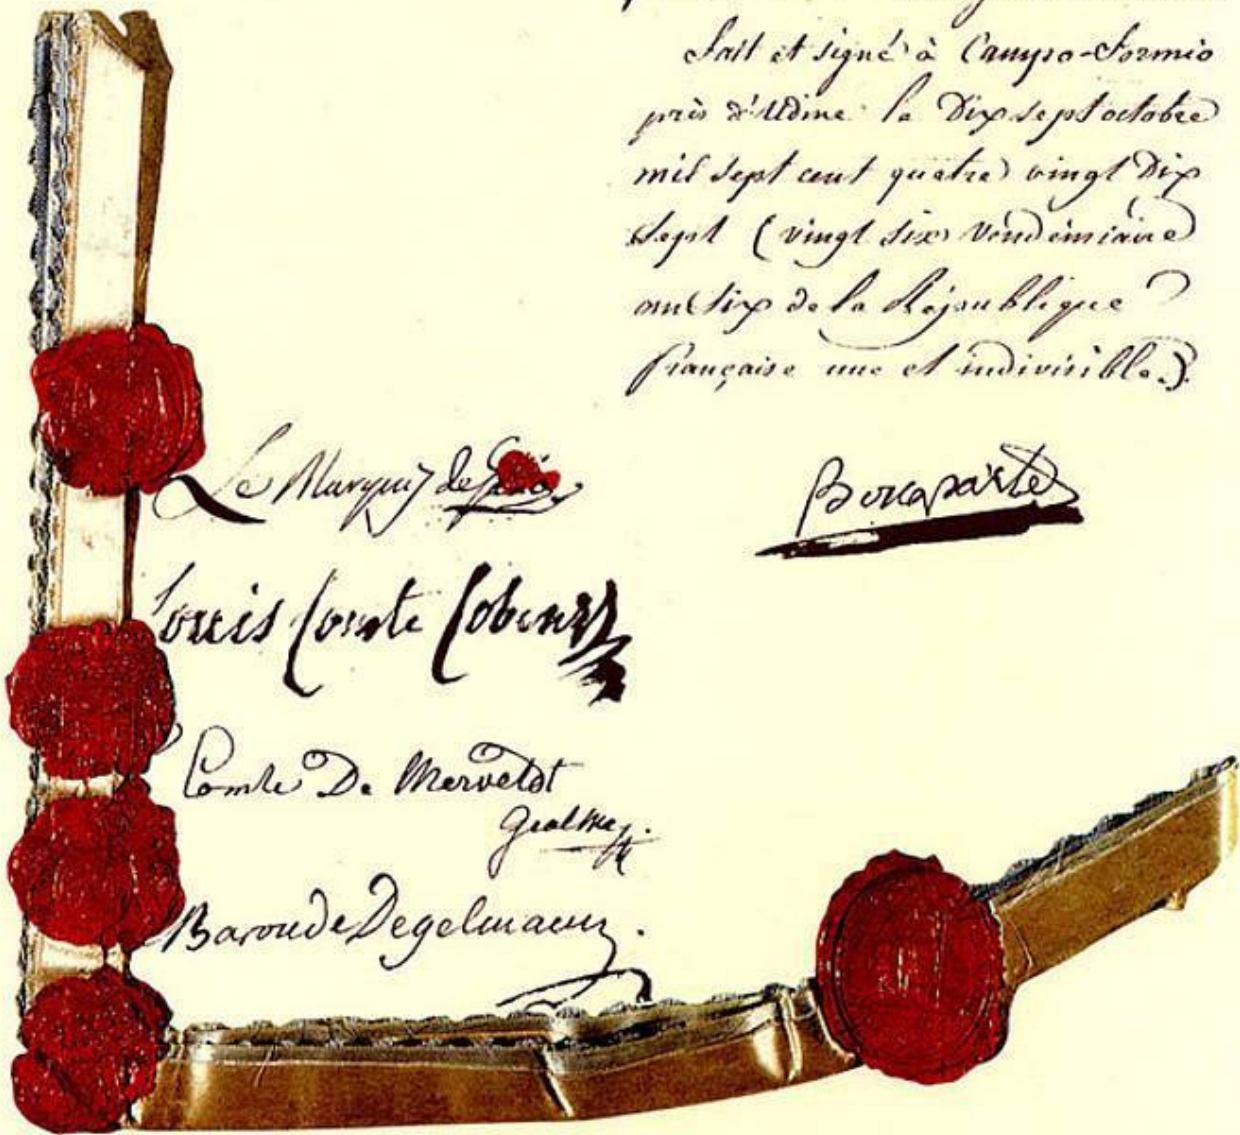 Fait et signé à Campo-Formio
près d'Udine le Dix sept octobre
mil sept cent quatre vingt Dix
sept (vingt six Vendémiaire
an six de la République
française une et indivisible.)
Bonaparte
Le Marquis de
Louis Comte Cobenzl
Comte De Merveldt
Baron de Degelmann.